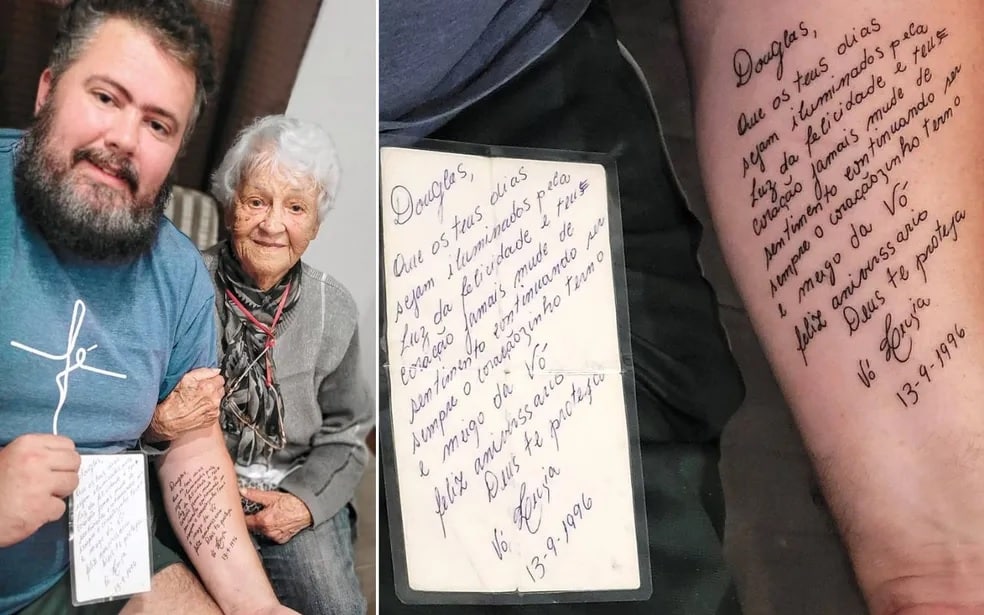 fé
Douglas,
Que os teus dias
sejam iluminados pela
Luz da felicidade e teu
coração jamais mude de
sentimento continuando ser
sempre o coraçãozinho terno
e meigo da Vó
feliz anivirssario
Deus te proteja
Vó Luzia
13-9-1996
Douglas,
Que os teus dias
sejam iluminados pela
Luz da felicidade e teu
coração jamais mude de
sentimento continuando ser
sempre o coraçãozinho terno
e meigo da Vó
feliz anivirssario
Deus te proteja
Vó Luzia
13-9-1996